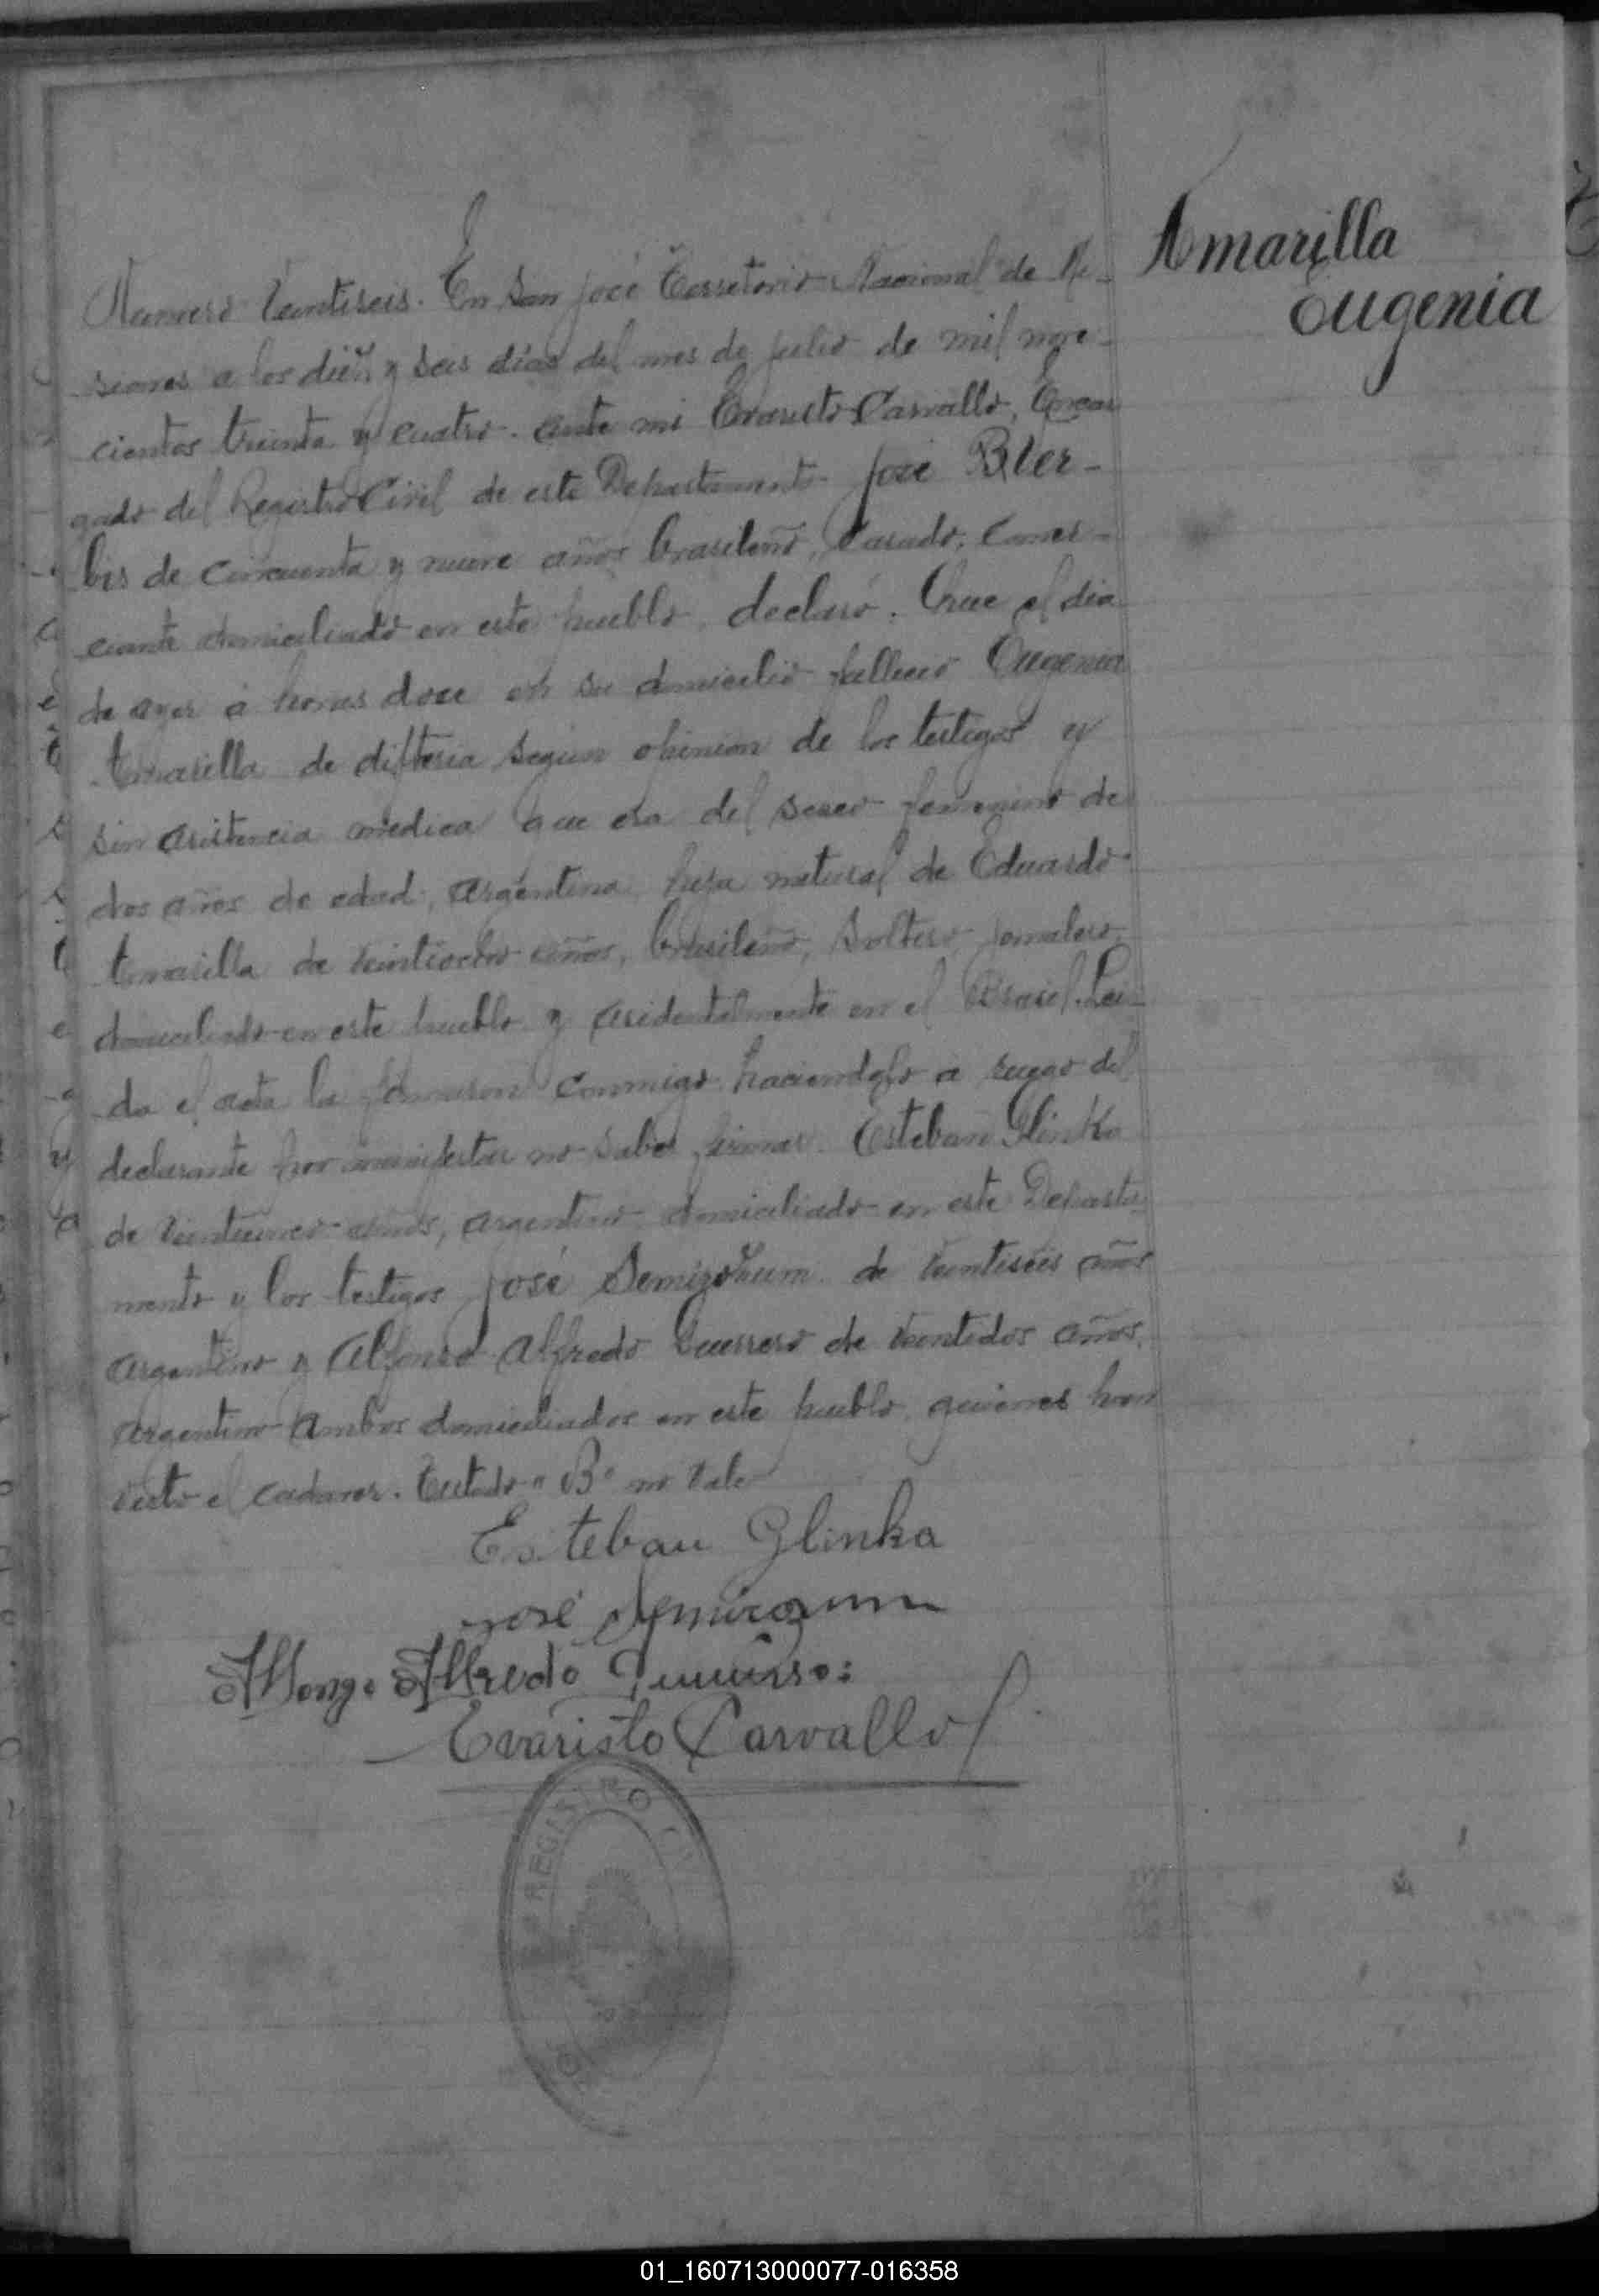 Amarilla
Eugenia
Numero Veintiseis. En San José Territorio Nacional de Mi-
siones a los diez y seis días del mes de julio de mil nove-
cientos treinta y cuatro. ante mi Evaristo Carvallo, Encar
gado del Registro Civil de este Departamento José
bis de cincuenta y nueve años brasileño, Casado, Comer-
ciante domiciliado en este pueblo, declaró: Que el dia
de ayer á horas doce en su domicilio falleció Eugenia
Amarilla de difteria segun opinion de los testigos y
sin asistencia medica que era del sexo femenino de
dos años de edad, argentina, hija natural de Eduardo
Amarilla de veintiocho años, brasileño, Soltero, jornalero,
domiciliado en este pueblo y acidentalmente en el Brasil. Lei-
da el acta la firmaron conmigo haciendolo a ruego del
declarante por manifestar no saber firmar. Esteban Glinka
de años, argentino domiciliado en este Departa
mento y los testigos José de veintiseis años
argentino y Alfonso Alfredo Guerrero de veintidos años,
argentino ambos domiciliados en este pueblo, quienes han
visto el cadaver. Testado "B" no vale
Esteban Glinka
José
Alfonzo Alfredo Guerrero:
Evaristo Carvallo
REGISTRO CIVIL
01_160713000077-016358